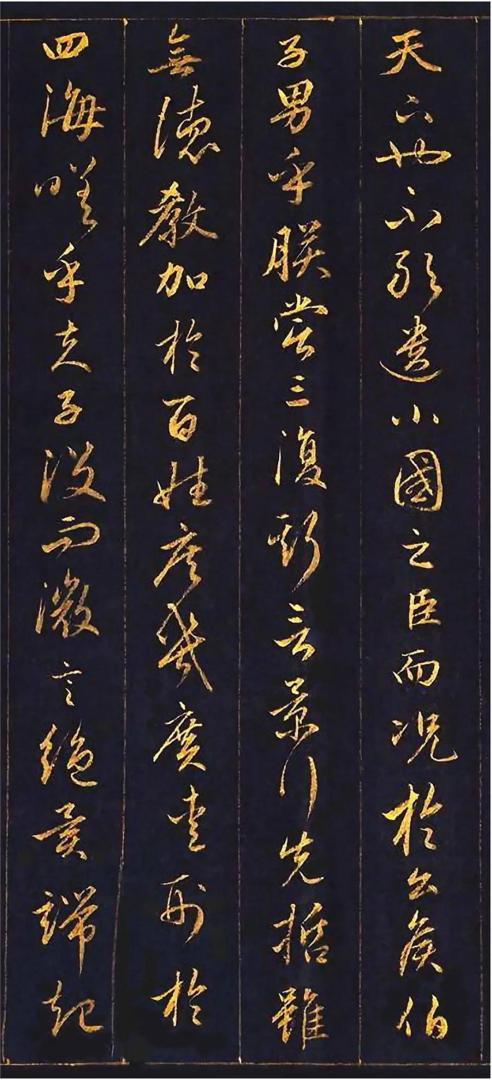 天下也不敢遺小國之臣而況於公侯伯
子男乎朕嘗三復斯言景行先哲雖
無德教加於百姓庶幾廣愛刑於
四海嗟乎夫子沒而微言絕異端起